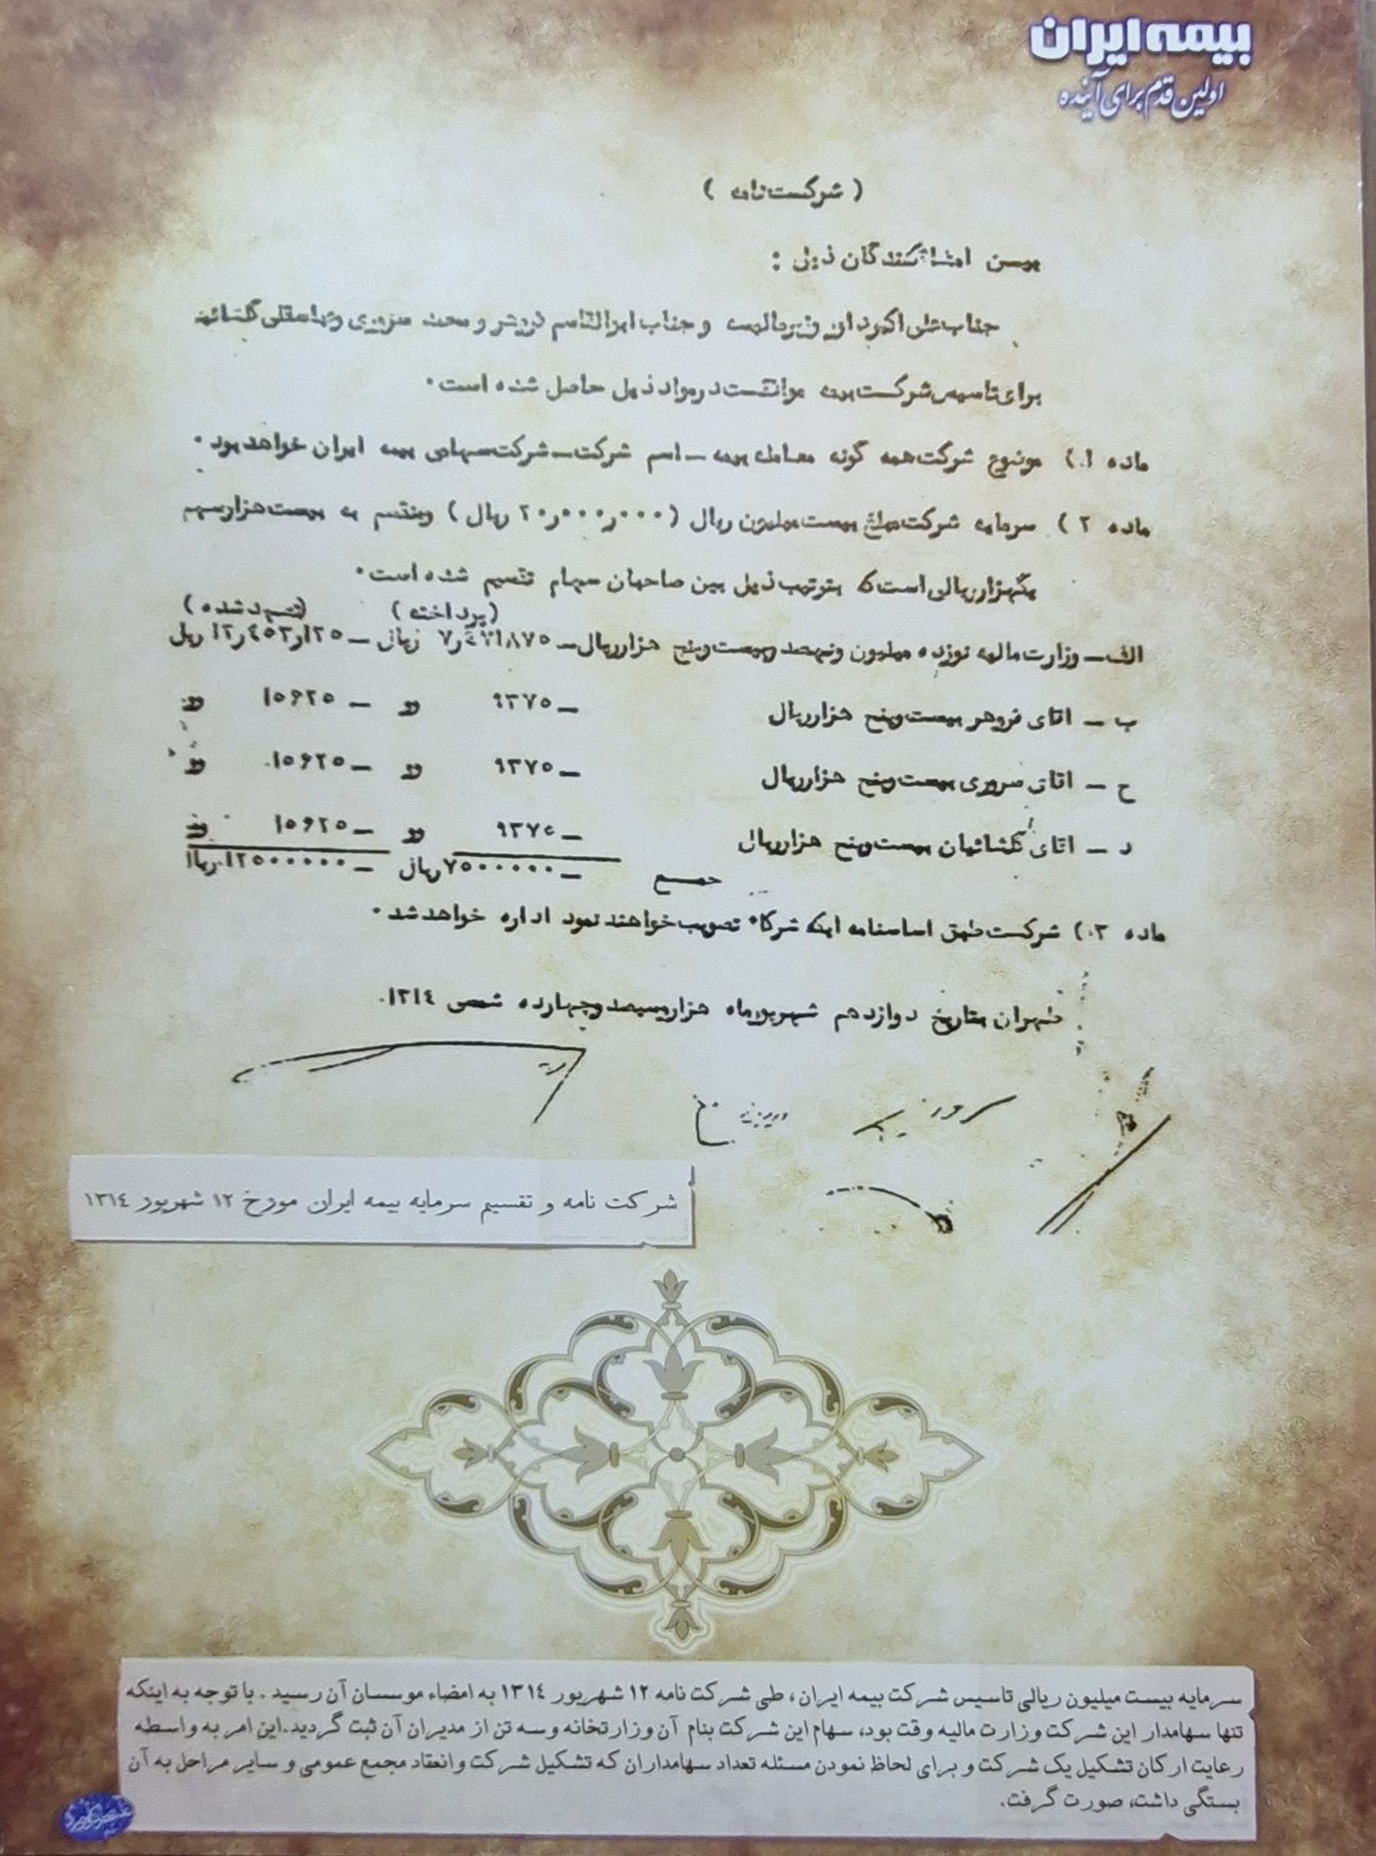 بیمه ایران
اولین قدم برای آینده
( شرکت نامه )
بین امضا کنندگان ذیل :
جناب علی اکبر داور وزیر مالیه و جناب ابوالقاسم فروهر و محمد سروری و عباسقلی گلشائیان
برای تاسیس شرکت بیمه موافقت در مواد ذیل حاصل شده است ٠
ماده ۱) موضوع شرکت همه گونه معامله بیمه ــ اسم شرکت ــ شرکت سهامی بیمه ایران خواهد بود ٠
ماده ۲ ) سرمایه شرکت مبلغ بیست میلیون ریال (۲۰ر۰۰۰ر۰۰۰ ریال ) و منقسم به بیست هزار سهم
یکهزار ریالی است که بترتیب ذیل بین صاحبان سهام تقسیم شده است ٠
(پرداخته) (تعهد شده)
الف ــ وزارت مالیه نوزده میلیون و نهصد و بیست و پنج هزار ریال ــ ۷ر٤۷۱۸۷٥ ریال ــ ۱۲ر٤٥۳ر۱۲٥ ریال
ب ــ اقای فروهر بیست و پنج هزار ریال ــ ۹۳۷٥ رر ــ ۱٥۶۲٥ رر
ح ــ اقای سروری بیست و پنج هزار ریال ــ ۹۳۷٥ رر ــ ۱٥۶۲٥ رر
د ــ اقای گلشائیان بیست و پنج هزار ریال ــ ۹۳۷٥ رر ــ ۱٥۶۲٥ رر
جمع ــ ۷٥۰۰۰۰۰ ریال ــ ۱۲٥۰۰۰۰۰ ریال
ماده ۳) شرکت طبق اساسنامه ایکه شرکاء تصویب خواهند نمود اداره خواهد شد ٠
طهران بتاریخ دوازدهم شهریور ماه هزار و سیصد و چهارده شمسی ۱۳۱٤
سروری
شرکت نامه و تقسیم سرمایه بیمه ایران مورخ ۱۲ شهریور ۱۳۱٤
سرمایه بیست میلیون ریالی تاسیس شرکت بیمه ایران، طی شرکت نامه ۱۲ شهریور ۱۳۱٤ به امضاء موسسان آن رسید . با توجه به اینکه
تنها سهامدار این شرکت وزارت مالیه وقت بود، سهام این شرکت بنام آن وزارتخانه و سه تن از مدیران آن ثبت گردید.این امر به واسطه
رعایت ارکان تشکیل یک شرکت و برای لحاظ نمودن مسئله تعداد سهامداران که تشکیل شرکت و انعقاد مجمع عمومی و سایر مراحل به آن
بستگی داشت، صورت گرفت.